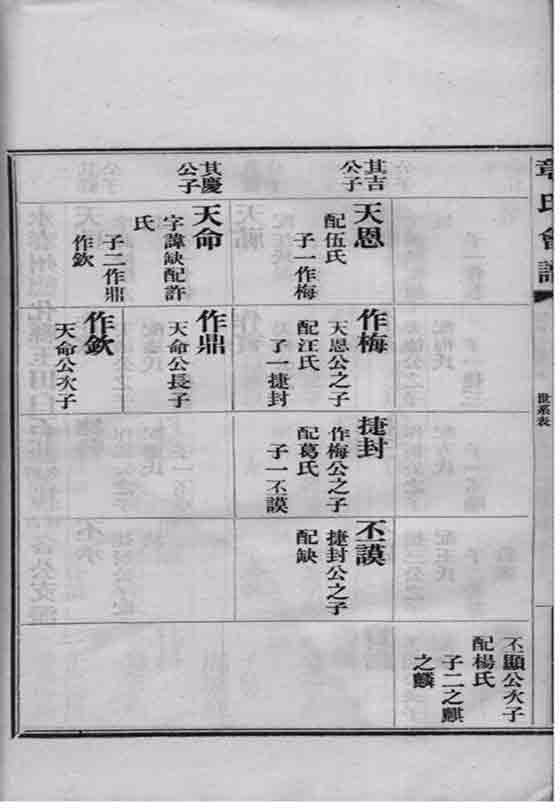 章氏會譜
世系表
丕顯公次子
配楊氏
子二之麒
之麟
其吉
公子
天恩
配伍氏
子一作梅
作梅
天恩公之子
配汪氏
子一捷封
捷封
作梅公之子
配葛氏
子一丕謨
丕謨
捷封公之子
配缺
其慶
公子
天命
字諱缺配許
氏
子二作鼎
作欽
作鼎
天命公長子
作欽
天命公次子